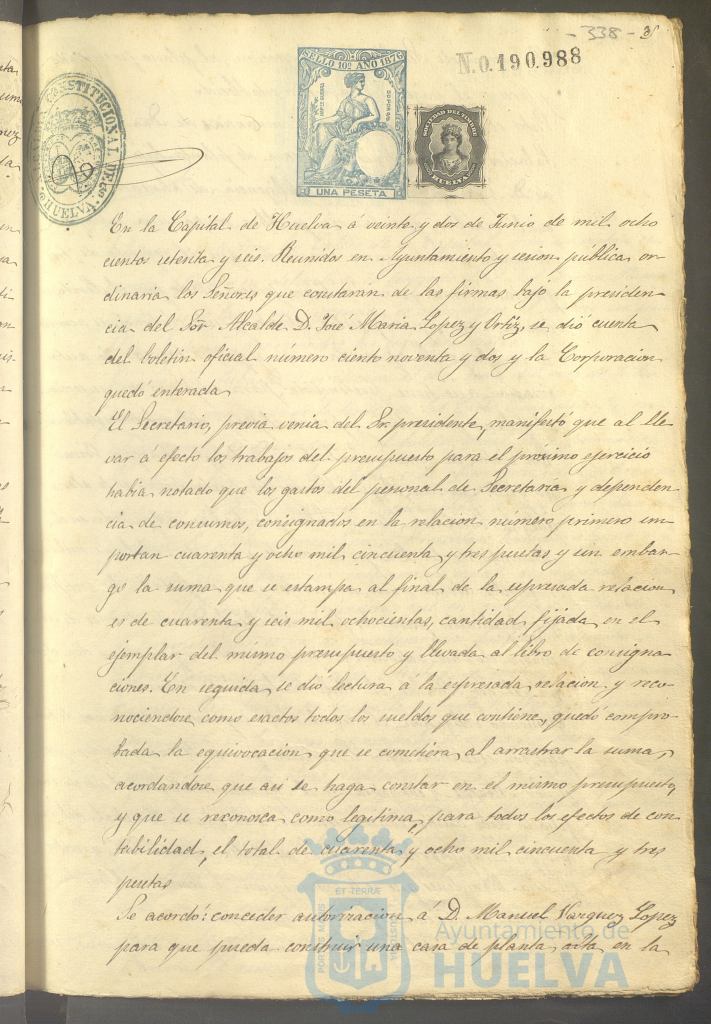 - 338 - 3
N.0.190.988
SELLO 10º AÑO 1876
UNA PESETA
SOCIEDAD DEL TIMBRE
HUELVA
CONSTITUCIONAL DE
HUELVA
En la Capital de Huelva á veinte y dos de Junio de mil ocho
cientos setenta y seis. Reunidos en Ayuntamiento y sesion pública or-
dinaria los Señores que constaran de las firmas bajo la presiden-
cia del Sor Alcalde D. José Maria Lopez y Ortiz, se dió cuenta
del boletin oficial número ciento noventa y dos y la Corporacion
quedó enterada
El Secretario, previa venia del Sr. presidente, manifestó que al lle
var á efecto los trabajos del presupuesto para el proximo ejercicio
habia notado que los gastos del personal de Secretaria y dependen-
cia de consumos, consignados en la relacion número primero im-
portan cuarenta y ocho mil cincuenta y tres pesetas y sin embar-
go la suma que se estampa al final de la espresada relacion
es de cuarenta y seis mil ochocientas, cantidad fijada en el
ejemplar del mismo presupuesto y llevada al libro de consigna
ciones. En seguida se dió lectura á la espresada relacion y reco-
nociendose como exactos todos los sueldos que contiene, quedó compro-
bada la equivocacion que se cometiera al arrastrar la suma,
acordandose que asi se haga constar en el mismo presupuesto,
y que se reconosca como legitima, para todos los efectos de con
tabilidad, el total de cuarenta y ocho mil cincuenta y tres
pesetas
Se acordó: conceder autorizacion á D. Manuel Vazquez Lopez
para que pueda construir una casa de planta alta en la
ET TERRÆ
PORTUS MARIS
CUSTODIA
Ayuntamiento de
HUELVA